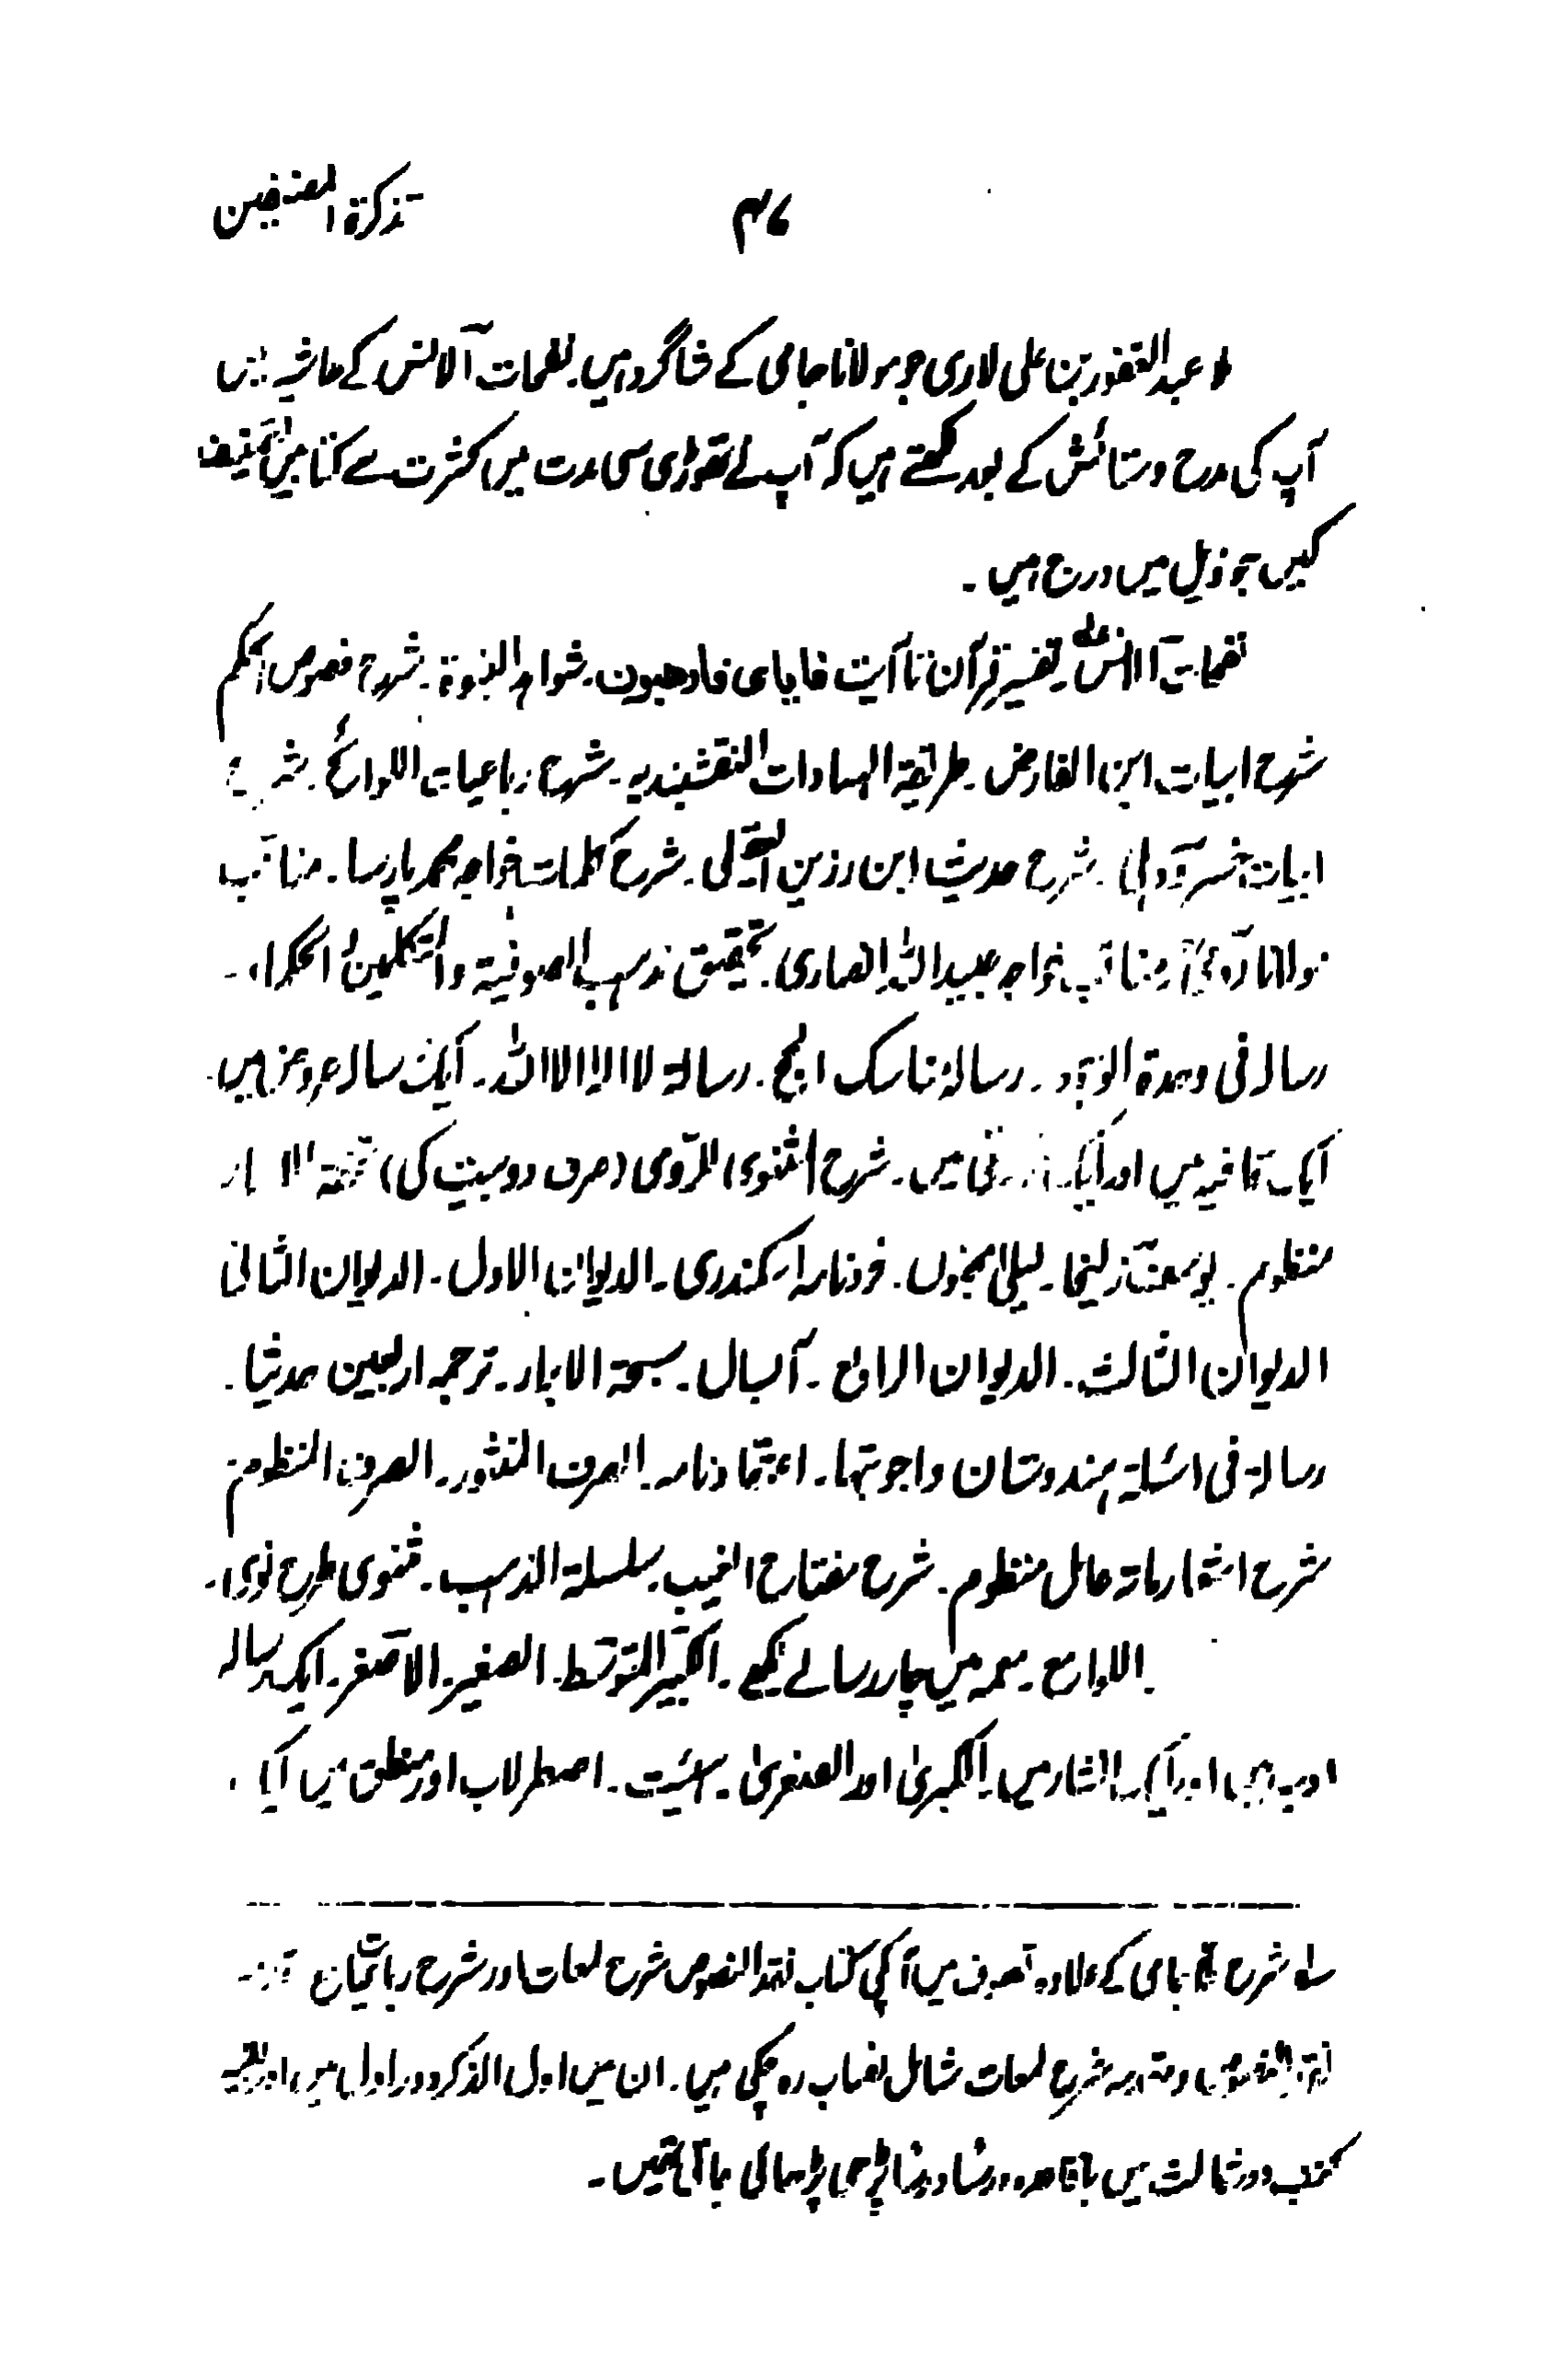 تذکرۃ المصنفین
۴۷
ملا عبد الغفور بن علی لاری جو مولانا جامی کے شاگرد ہیں۔ نفحات الانس کے حاشیہ میں
آپ کی مدح و ستائش کے بعد لکھتے ہیں کہ آپ نے تھوڑی سی مدت میں کثرت سے کتابیں تصنیف
کیں جو ذیل میں درج ہیں۔
نفحات الانس۔ تفسیر قرآن تا آیت فایای فارھبون۔ شواہد النبوۃ۔ شرح فصوص الحکم
شرح ابیات ابن الفارض۔ طریقۃ السادات النقشبندیہ۔ شرح رباعیات اللوائح۔ شرح
ابیات خسرو دہلی۔ شرح حدیث ابن رزین العقیلی۔ شرح کلمات خواجہ محمد پارسا۔ مناقب
مولانا رومی۔ مناقب خواجہ عبید اللہ انصاری۔ تحقیق مذہب الصوفیۃ والمتکلمین والحکماء۔
رسالہ فی وحدۃ الوجود۔ رسالہ مناسک الحج۔ رسالۃ لا الہ الا اللہ۔ ایک رسالہ عروض میں
ایک قافیہ میں اور ایک میں۔ شرح المثنوی للرومی (صرف دو بیت کی) تحفۃ الاحرار
منظوم۔ یوسف زلیخا۔ لیلیٰ مجنوں۔ خردنامہ اسکندری۔ الدیوان الاول۔ الدیوان الثانی
الدیوان الثالث۔ الدیوان الرابع۔ آبسال۔ سبحۃ الابرار۔ ترجمہ اربعین حدیثا۔
رسالۃ فی اسئلۃ ہندوستان واجوبتہا۔ اعتقادنامہ۔ الصرف المنثور۔ الصرف المنظوم
شرح مائۃ عامل منظوم۔ شرح مفتاح الغیب۔ سلسلۃ الذہب۔ مثنوی طرح نوی۔
اللوامع۔ معمہ میں چار رسالے لکھے۔ الکبیر۔ المتوسط۔ الصغیر۔ الاصغر۔ ایک رسالہ
ادب میں اور ایک انشار میں۔ الکبریٰ اور الصغریٰ۔ ہیئت۔ اصطرلاب اور منطق میں ایک
لہ شرح جامی کے علاوہ تصوف میں آپکی کتاب نقد النصوص شرح لمعات اور شرح رباعیات
نقد النصوص و شرح لمعات شامل نصاب رہ چکی ہیں۔ ان میں اول الذکر دور اول میں اور بقیہ
کتب دور ثالث میں باقاعدہ درسا درسا پڑھی پڑھائی جاتی تھیں۔